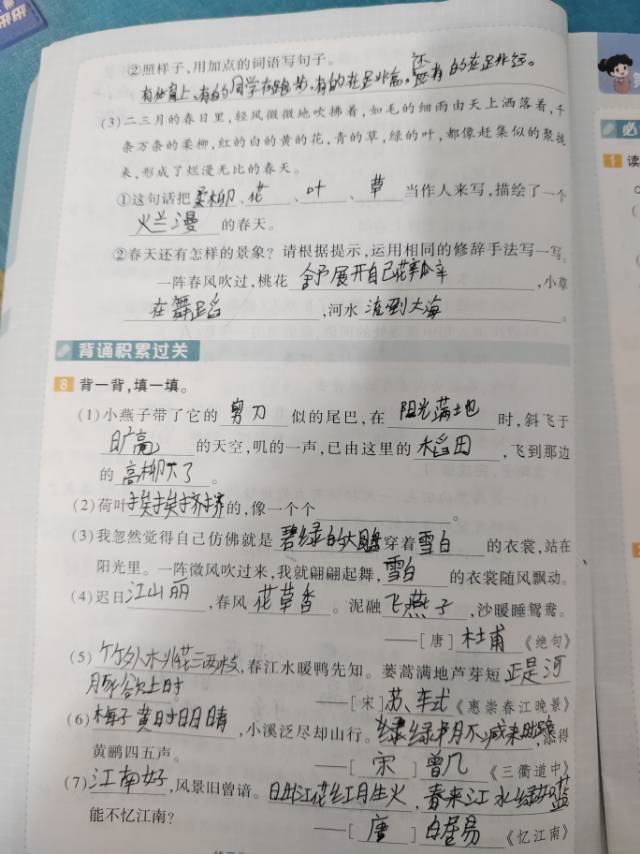 ②照样子,用加点的词语写句子。
有的同学在跑步,有的在足非高,还有的在足非远。
(3)二三月的春日里,轻风微微地吹拂着,如毛的细雨由天上洒落着,千
条万条的柔柳,红的白的黄的花,青的草,绿的叶,都像赶集似的聚拢
来,形成了烂漫无比的春天。
①这句话把柔柳、花、叶、草当作人来写,描绘了一个
烂漫的春天。
②春天还有怎样的景象?请根据提示,运用相同的修辞手法写一写。
一阵春风吹过,桃花舒展开自己花,小草
在舞蹈,河水流到大海。
背诵积累过关
8 背一背,填一填。
(1)小燕子带了它的剪刀似的尾巴,在阳光满地时,斜飞于
旷高的天空,叽的一声,已由这里的稻田,飞到那边
的高柳下了。
(2)荷叶挨挨挤挤的,像一个个。
(3)我忽然觉得自己仿佛就是碧绿的大圆盘穿着雪白的衣裳,站在
阳光里。一阵微风吹过来,我就翩翩起舞,雪白的衣裳随风飘动。
(4)迟日江山丽,春风花草香。泥融飞燕子,沙暖睡鸳鸯。
——[唐]杜甫《绝句》
(5)竹外桃花三两枝,春江水暖鸭先知。蒌蒿满地芦芽短,正是河
豚欲上时
——[宋]苏、轼《惠崇春江晚景》
(6)梅子黄时日日晴,小溪泛尽却山行。绿阴不减来时路,添得
黄鹂四五声。
——[宋]曾几《三衢道中》
(7)江南好,风景旧曾谙。日出江花红胜火,春来江水绿如蓝
能不忆江南?
——[唐]白居易《忆江南》